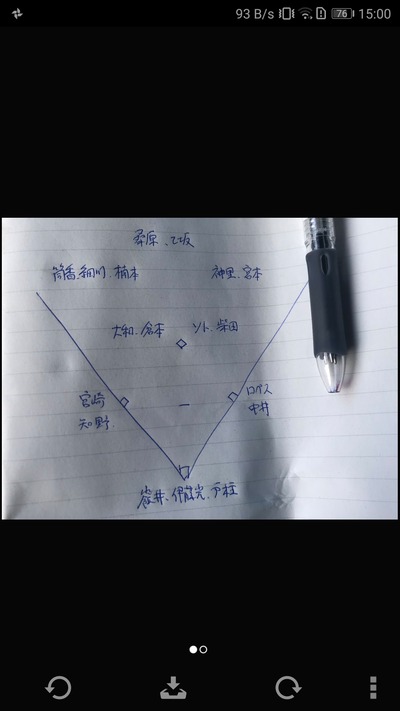 93 B/s 76 15:00
桑原、乙坂
筒香、細川、楠本
神里、宮本
大和、倉本
ソト、柴田
宮崎
知野
ロペス
中井
嶺井、伊藤光、戸柱